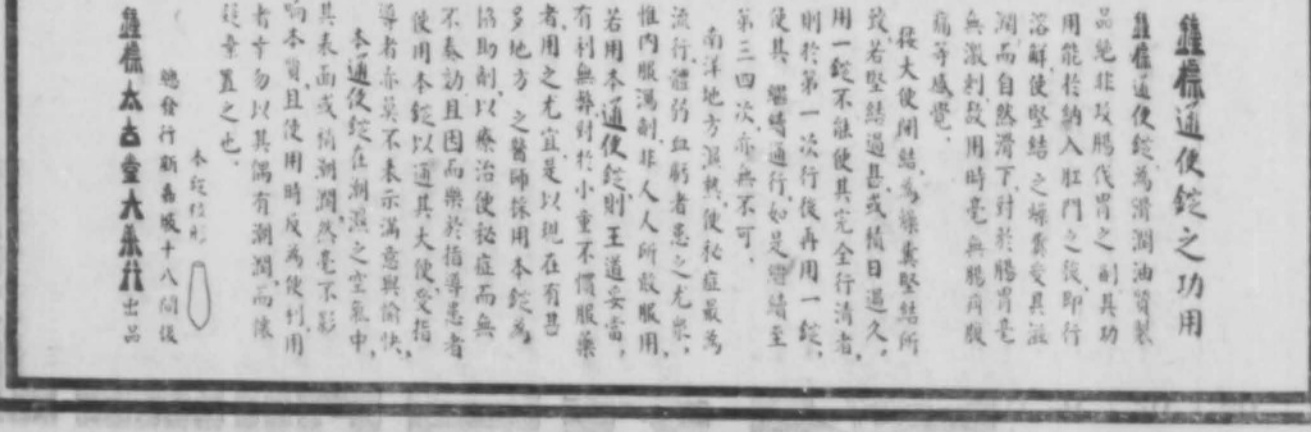 鐘標通便錠之功用
鐘標通便錠為滑潤油質製
品絕非攻腸伐胃之劑其功
用能於納入肛門之後即行
溶解使堅結之燥糞受其滋
潤而自然滑下對於腸胃毫
無激刺故用時毫無腸胃腹
痛等感覺
按大便閉結為燥糞堅結所
致若堅結過甚或積日過久
用一錠不能使其完全行清者
則於第一次行後再用一錠
使其繼續通行如是繼續至
第三四次亦無不可
南洋地方濕熱便秘症最為
流行體弱血虧者患之尤衆
惟內服瀉劑非人人所敢服用
若用本通便錠則王道妥當
有利無弊對於小童不慣服藥
者用之尤宜是以現在有甚
多地方之醫師採用本錠為
協助劑以療治便秘症而無
不奏効且因而樂於指導患者
使用本錠以通其大便受指
導者亦莫不表示滿意與愉快
本通便錠在潮濕之空氣中
其表面或稍潮潤然毫不影
响本質且使用時反為便利用
者幸勿以其偶有潮潤而懷
疑棄置之也
本錠位形
總發行新嘉坡十八間後
鐘標大古壹大藥行出品